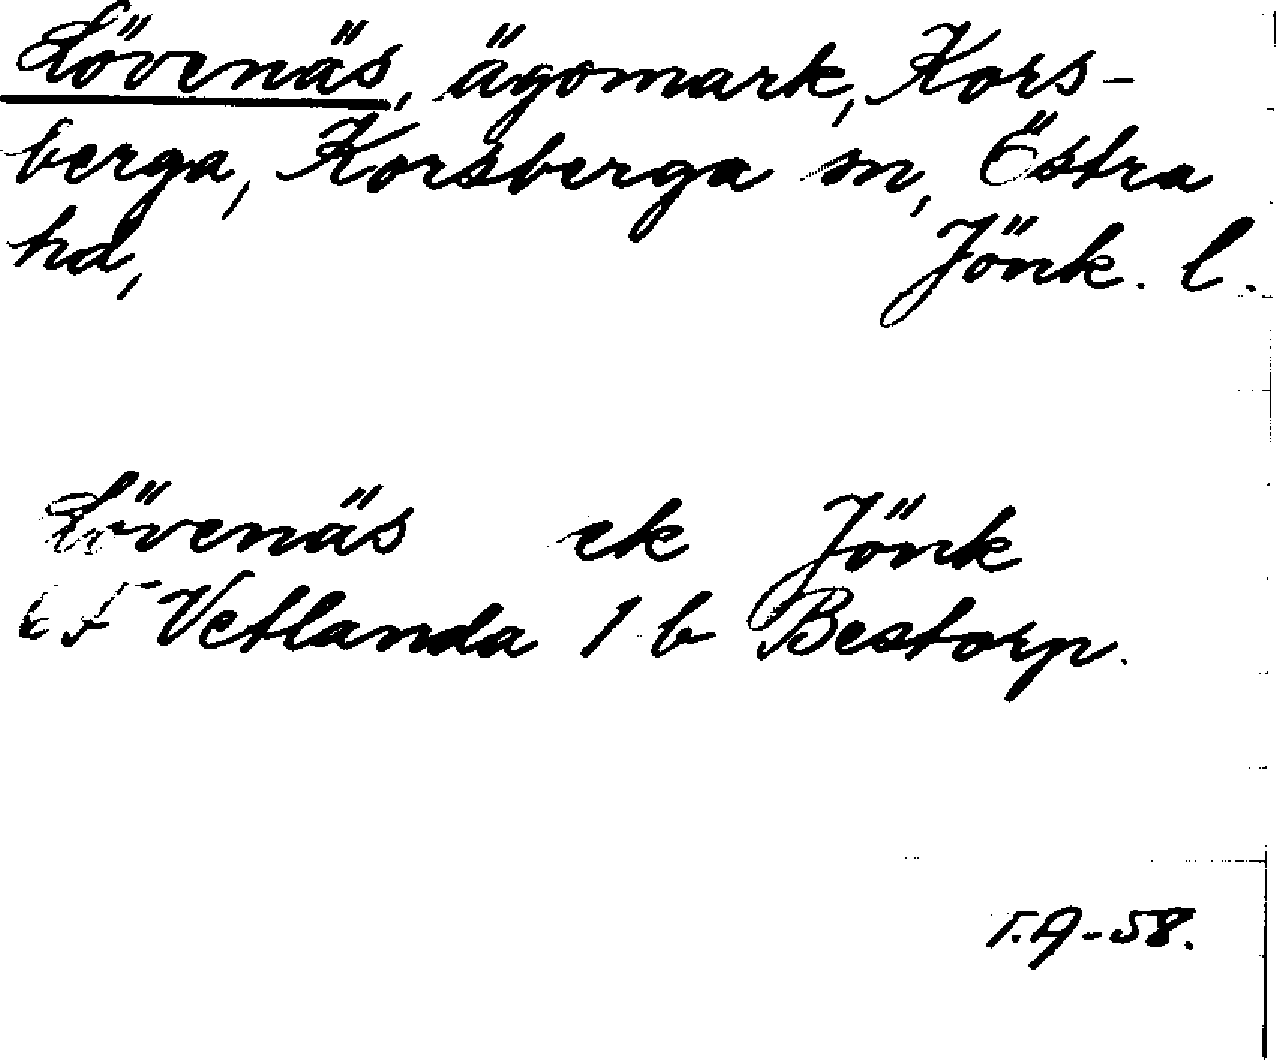 Lövenäs, ägomark, Kors-
berga, Korsberga sn, Östra
hd, Jönk. l.
Lövenäs ek Jönk
6 F Vetlanda 1 b Bestorp.
T.A-58.